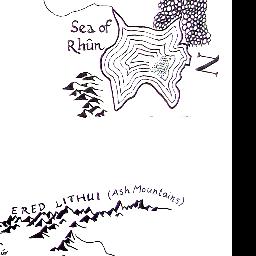 Sea of
Rhûn
N
ERED LITHUI (Ash Mountains)